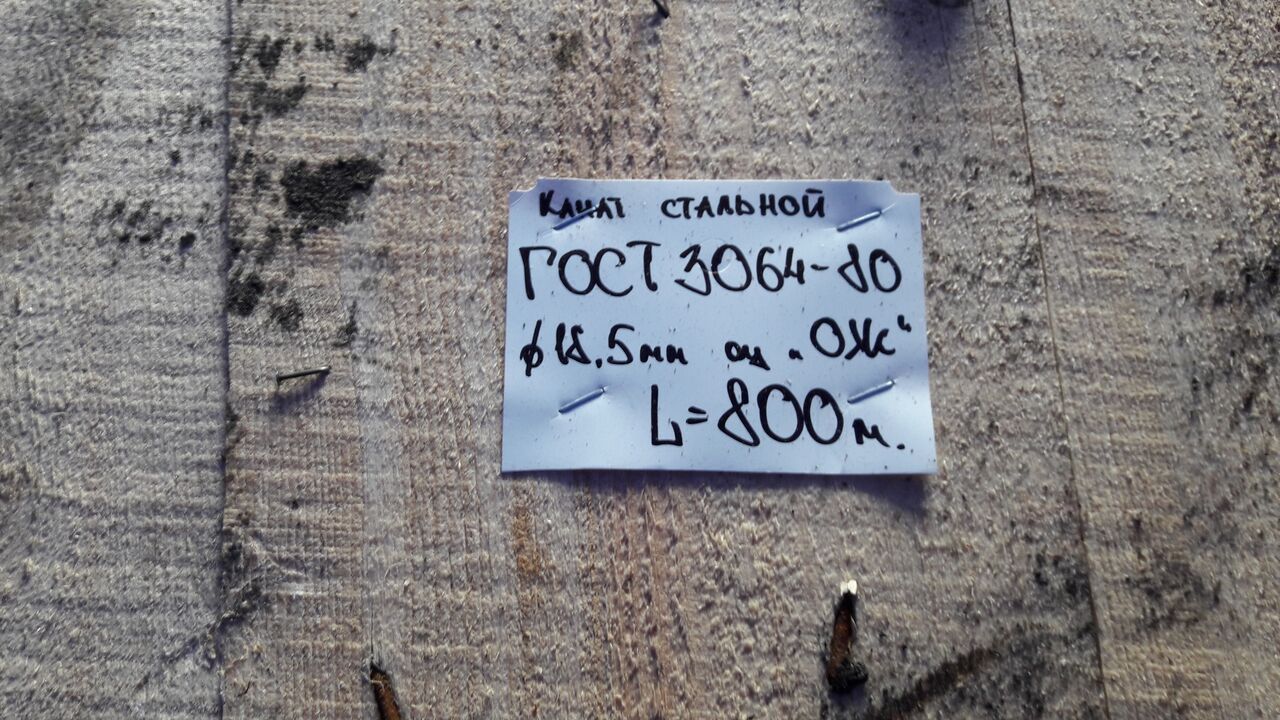 Канат стальной
ГОСТ 3064-80
ϕ 18.5мм оц „ОЖ“
L=800 м.